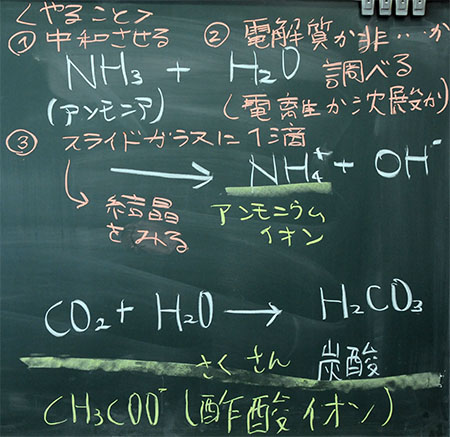 <やること>
① 中和させる
② 電解質か非‥か
調べる
(電離か沈殿か)
NH₃ + H₂O
(アンモニア)
③ スライドガラスに1滴
↳ 結晶
をみる
⟶ NH₄⁺ + OH⁻
アンモニウム
イオン
CO₂ + H₂O ⟶ H₂CO₃
炭酸
さくさん
CH₃COO⁻ (酢酸イオン)